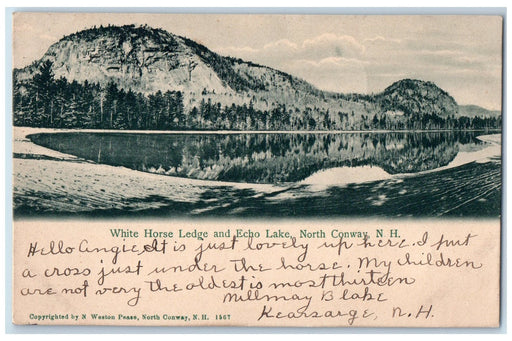 White Horse Ledge and Echo Lake, North Conway, N. H.
Hello Angie, It is just lovely up here. I put
a cross just under the horse. My children
are not very the oldest is most thirteen
Millmay Blake
Kearsarge, N.H.
Copyrighted by N Weston Pease, North Conway, N. H. 1567